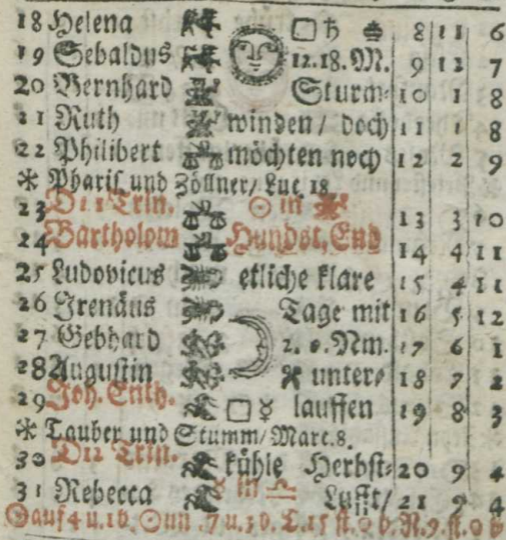 18 Helena □ ♄ 8 11 6
19 Sebaldus 12.18.M. 9 12 7
20 Bernhard Sturm- 10 1 8
21 Ruth winden / doch 11 1 8
22 Philibert möchten noch 12 2 9
* Pharis. und Zöllner / Luc. 18.
23 D11 Trin. ☉ in 13 3 10
24 Bartholom Hundst. End 14 4 11
25 Ludovicus etliche klare 15 4 11
26 Irenäus Tage mit 16 5 12
27 Gebhard 2. 0. Nm. 17 6 1
28 Augustin unter- 18 7 2
29 Joh. Enth. □ ☿ lauffen 19 8 3
* Tauber und Stumm / Marc. 8.
30 D12 Trin. kühle Herbst- 20 9 4
31 Rebecca in ♎ Lufft / 21 9 4
☉ auf 4 u. 16. ☉ un. 7 u. 30. T. 15 st. 0 b. N. 9. st. 0 b